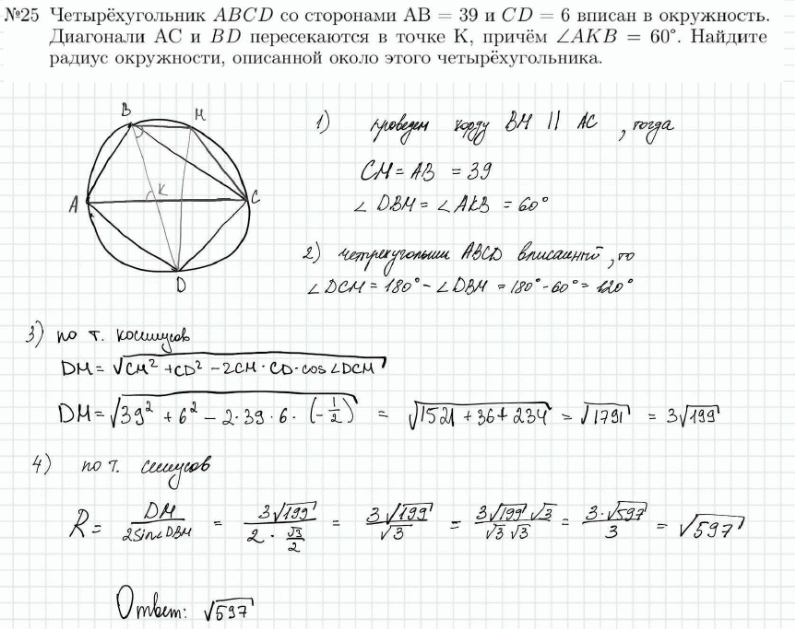 №25 Четырёхугольник ABCD со сторонами AB = 39 и CD = 6 вписан в окружность.
Диагонали AC и BD пересекаются в точке K, причём ∠AKB = 60°. Найдите
радиус окружности, описанной около этого четырёхугольника.
B M
A K C
D
1) проведем хорду BM || AC , тогда
CM = AB = 39
∠ DBM = ∠ AKB = 60°
2) четырехугольник ABCD вписанный, то
∠ DCM = 180° - ∠ DBM = 180° - 60° = 120°
3) по т. косинусов
DM = √CM² + CD² - 2CM · CD · cos∠DCM
DM = √39² + 6² - 2·39·6·(-1/2) = √1521 + 36 + 234 = √1791 = 3√199
4) по т. синусов
R = DM/2sin∠DBM = 3√199/2·√3/2 = 3√199/√3 = 3√199 √3/√3 √3 = 3·√597/3 = √597
Ответ: √597